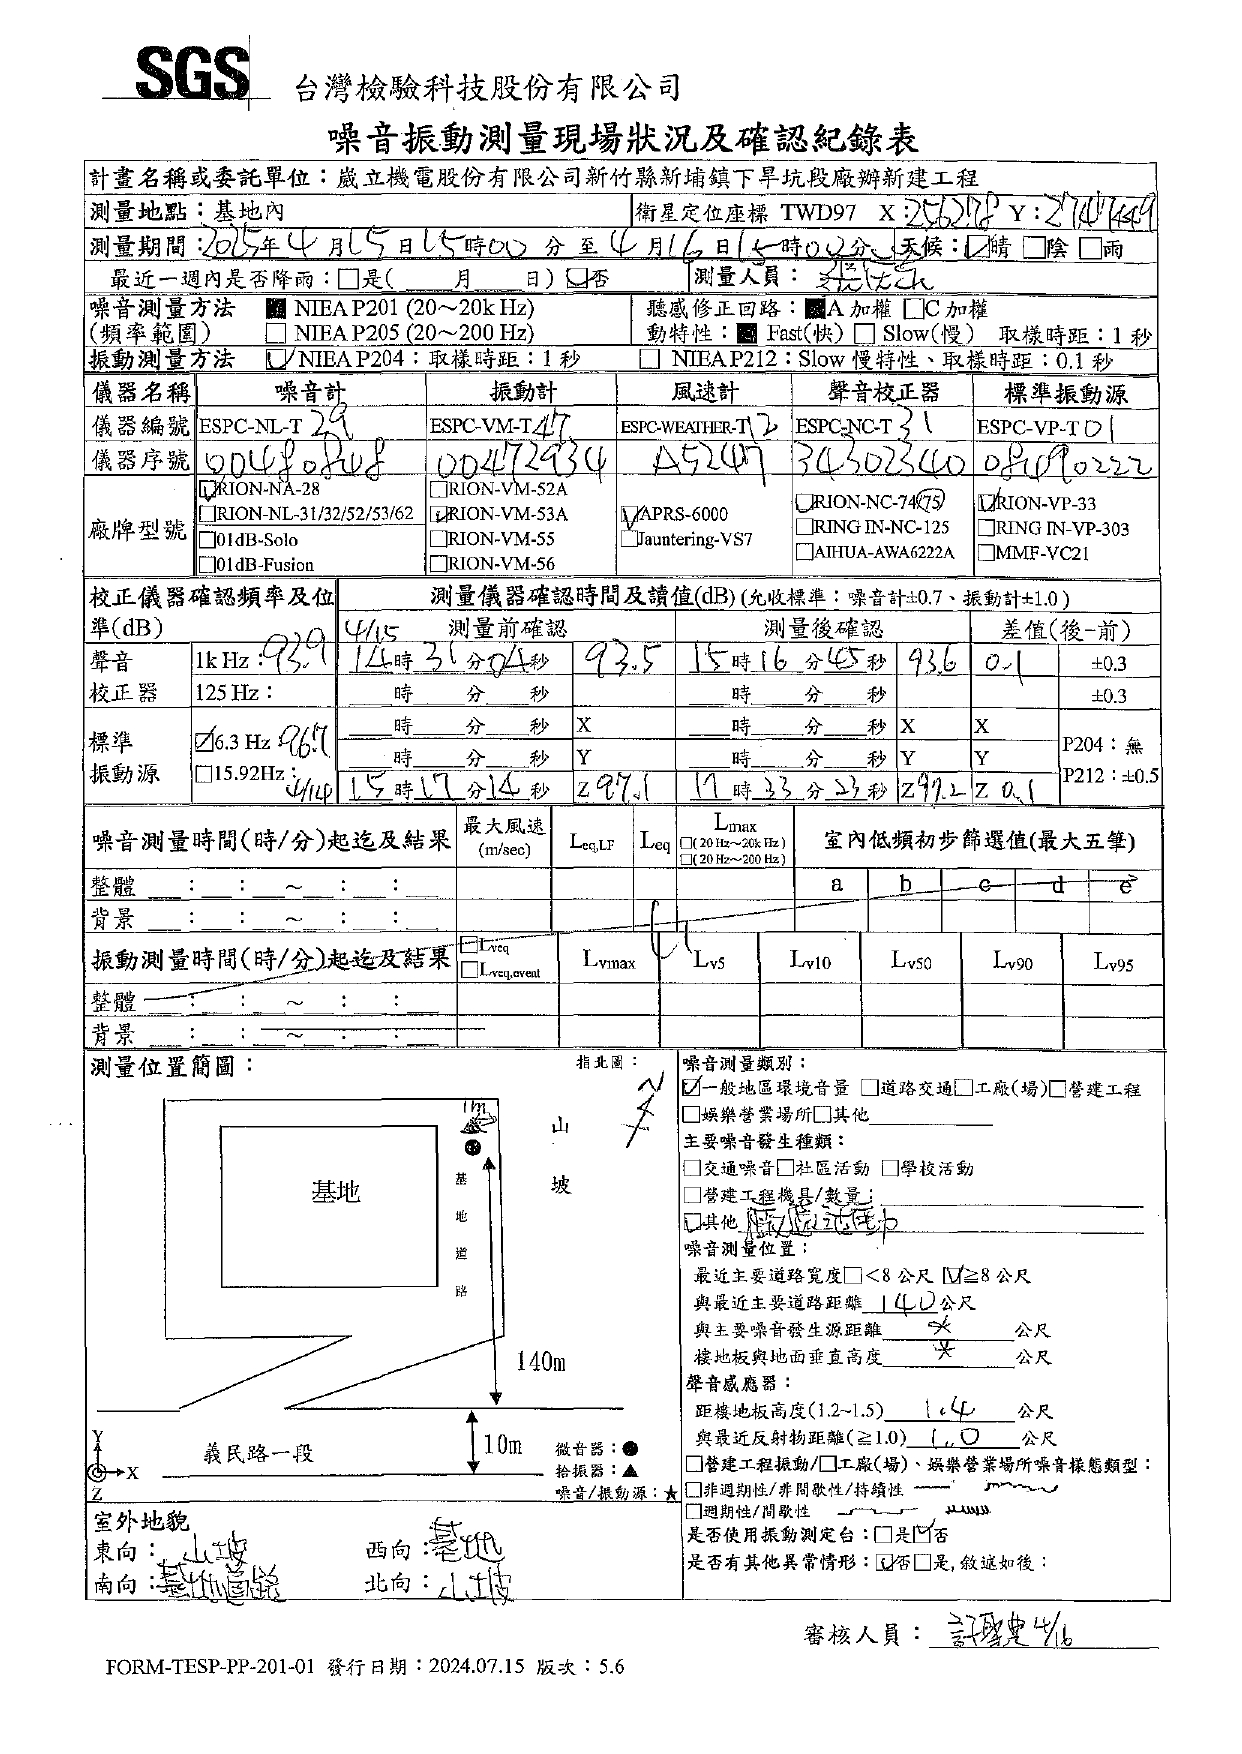 SGS 台灣檢驗科技股份有限公司
噪音振動測量現場狀況及確認紀錄表
計畫名稱或委託單位：崴立機電股份有限公司新竹縣新埔鎮下旱坑段廠辦新建工程
測量地點：基地內 衛星定位座標 TWD97 X:256278 Y:2747449
測量期間：2025年4月15日15時00分至4月16日15時00分 天候：☑晴 □陰 □雨
最近一週內是否降雨：□是( 月 日) ☑否 測量人員：
噪音測量方法 ■ NIEA P201 (20～20k Hz) 聽感修正回路：■A 加權 □C 加權
(頻率範圍) □ NIEA P205 (20～200 Hz) 動特性：■ Fast(快) □ Slow(慢) 取樣時距：1 秒
振動測量方法 ☑NIEA P204：取樣時距：1 秒 □ NIEA P212：Slow 慢特性、取樣時距：0.1 秒
儀器名稱 噪音計 振動計 風速計 聲音校正器 標準振動源
儀器編號 ESPC-NL-T 29 ESPC-VM-T 47 ESPC-WEATHER-T12 ESPC-NC-T 31 ESPC-VP-T 01
儀器序號 00480848 00472934 A5247 34302340 08490222
廠牌型號
☑RION-NA-28 □RION-VM-52A
□RION-NL-31/32/52/53/62 ☑RION-VM-53A ☑APRS-6000 ☑RION-NC-74(75) ☑RION-VP-33
□01dB-Solo □RION-VM-55 □Jauntering-VS7 □RING IN-NC-125 □RING IN-VP-303
□01dB-Fusion □RION-VM-56 □AIHUA-AWA6222A □MMF-VC21
校正儀器確認頻率及位準(dB) 測量儀器確認時間及讀值(dB) (允收標準：噪音計±0.7、振動計±1.0)
4/15 測量前確認 測量後確認 差值(後-前)
聲音校正器 1k Hz：93.9 14時31分04秒 93.5 15時16分45秒 93.6 0.1 ±0.3
125 Hz： 時 分 秒 時 分 秒 ±0.3
標準振動源 ☑6.3 Hz 96.7 時 分 秒 X 時 分 秒 X X
□15.92Hz： 時 分 秒 Y 時 分 秒 Y Y P204：無
4/14 15時17分14秒 Z 97.1 17時33分23秒 Z 97.2 Z 0.1 P212：±0.5
噪音測量時間(時/分)起迄及結果 最大風速(m/sec) Leq,LF Leq Lmax □(20 Hz～20k Hz) □(20 Hz～200 Hz) 室內低頻初步篩選值(最大五筆)
整體 : : ～ : : a b c d e
背景 : : ～ : :
振動測量時間(時/分)起迄及結果 □Lveq □Lveq,event Lvmax Lv5 Lv10 Lv50 Lv90 Lv95
整體 : : ～ : :
背景 : : ～ : :
測量位置簡圖： 指北圖： N
1m
山坡
基地
基地道路
140m
10m
義民路一段
Y
X
Z
微音器：●
拾振器：▲
噪音/振動源：★
室外地貌
東向：山坡 西向：基地
南向：基地道路 北向：山坡
噪音測量類別：
☑一般地區環境音量 □道路交通 □工廠(場) □營建工程
□娛樂營業場所 □其他
主要噪音發生種類：
□交通噪音 □社區活動 □學校活動
□營建工程機具/數量：
☑其他
噪音測量位置：
最近主要道路寬度 □<8 公尺 ☑≧8 公尺
與最近主要道路距離 140 公尺
與主要噪音發生源距離 * 公尺
樓地板與地面垂直高度 * 公尺
聲音感應器：
距樓地板高度(1.2~1.5) 1.4 公尺
與最近反射物距離(≧1.0) 1.0 公尺
□營建工程振動/□工廠(場)、娛樂營業場所噪音樣態類型：
□非週期性/非間歇性/持續性
□週期性/間歇性
是否使用振動測定台：□是 ☑否
是否有其他異常情形：☑否 □是,敘述如後：
審核人員： 4/16
FORM-TESP-PP-201-01 發行日期：2024.07.15 版次：5.6